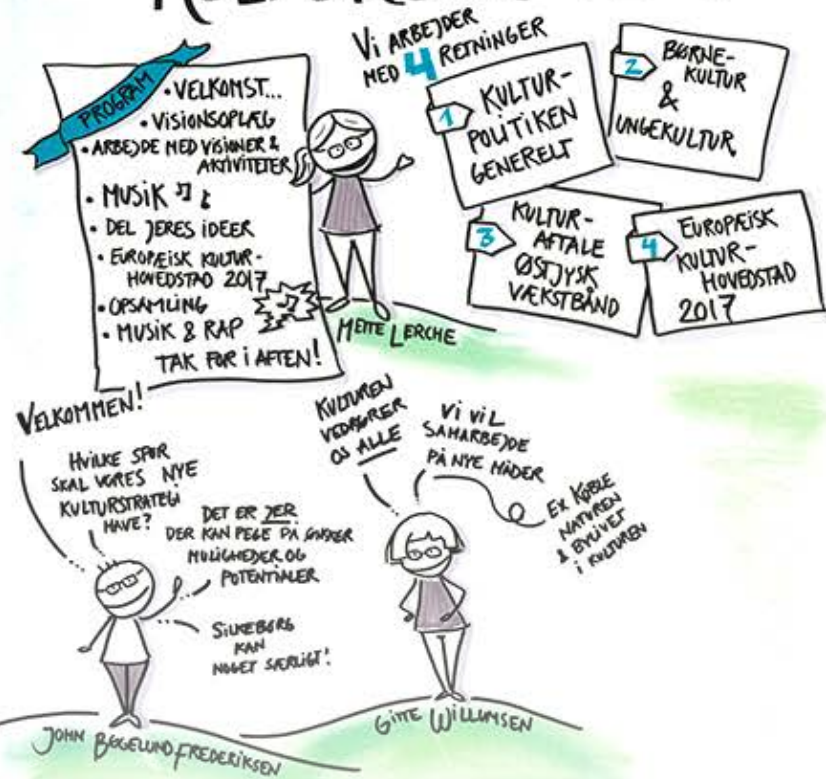 PROGRAM
• VELKOMST...
• VISIONSOPLÆG
• ARBEJDE MED VISIONER &
AKTIVITETER
• MUSIK
• DEL JERES IDEER
• EUROPÆISK KULTUR-
HOVEDSTAD 2017
• OPSAMLING
• MUSIK & RAP
TAK FOR I AFTEN!
METTE LERCHE
VI ARBEJDER
MED 4 RETNINGER
1
KULTUR-
POLITIKEN
GENERELT
2
BØRNE-
KULTUR
&
UNGEKULTUR
3
KULTUR-
AFTALE
ØSTJYSK
VÆKSTBÅND
4
EUROPÆISK
KULTUR-
HOVEDSTAD
2017
VELKOMMEN!
HVILKE SPOR
SKAL VORES NYE
KULTURSTRATEGI
HAVE?
DET ER JER
DER KAN PEGE PÅ
MULIGHEDER OG
POTENTIALER
SILKEBORG
KAN
NOGET SÆRLIGT!
JOHN BEGELUND FREDERIKSEN
KULTUREN
VEDRØRER
OS ALLE
VI VIL
SAMARBEJDE
PÅ NYE MÅDER
EX KOBLE
NATUREN
& BYLIVET
I KULTUREN
GITTE WILLUMSEN